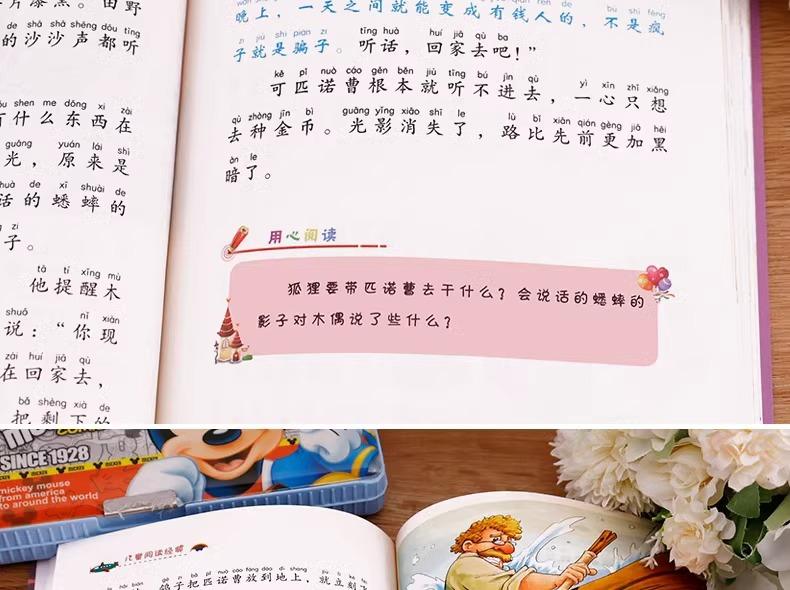 片漆黑。田野
de shā shā shēng dōu tīng
的沙沙声都听
shen me dōng xi zài
有什么东西在
guāng yuán lái shì
光，原来是
huà de xī shuài de
话的蟋蟀的
zi
子。
tā tí xǐng mù
他提醒木
shuō nǐ xiàn
说：“你现
zài huí jiā qù
在回家去，
bǎ shèng xià de
把剩下的
晚上，一天之间就能变成有钱人的，不是疯
zi jiù shì piàn zi tīng huà huí jiā qù ba
子就是骗子。听话，回家去吧！”
kě pǐ nuò cáo gēn běn jiù tīng bú jìn qù yì xīn zhǐ xiǎng
可匹诺曹根本就听不进去，一心只想
qù zhòng jīn bì guāng yǐng xiāo shī le lù bǐ xiān qián gèng jiā hēi
去种金币。光影消失了，路比先前更加黑
àn le
暗了。
用心阅读
狐狸要带匹诺曹去干什么？会说话的蟋蟀的
影子对木偶说了些什么？
SINCE 1928
mickey mouse
from america
to around the world
儿童阅读经典
鸽子把匹诺曹放到地上，就立刻